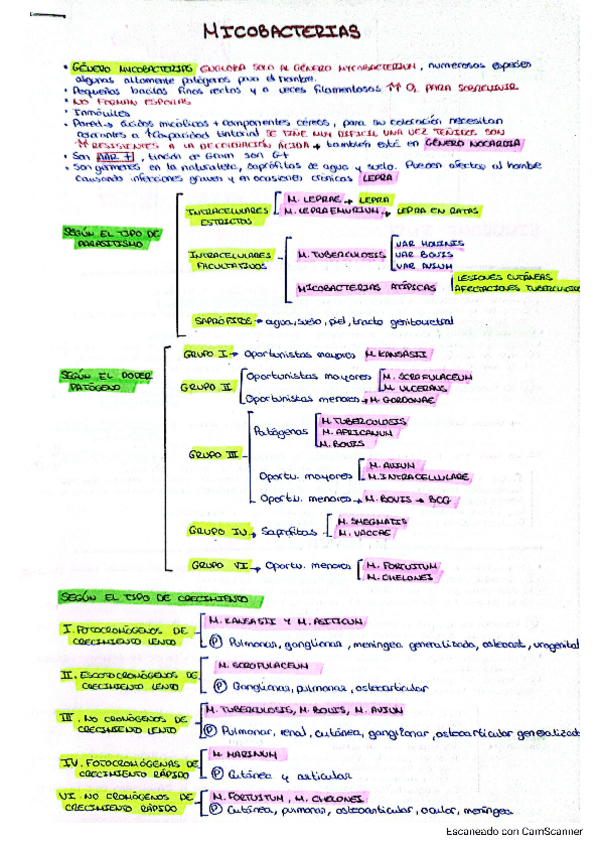 MICOBACTERIAS
• GÉNERO MYCOBACTERIAS ENGLOBA SOLO AL GÉNERO MYCOBACTERIUM, numerosas especies
algunas altamente patógenas para el hombre.
• Pequeños bacilos finos rectos y a veces filamentosos ↑↑ O₂ PARA SOBREVIVIR
• NO FORMAN ESPORAS
• Inmóviles
• Pared → ácidos micólicos + componentes céreos, para su coloración necesitan
a ↑capacidad tintorial SE TIÑE MUY DIFICIL UNA VEZ TEÑIDAS SON
↑↑ RESISTENTES A LA DECOLORACIÓN ÁCIDA → también está en GÉNERO NOCARDIA
• Son AAR +, tinción de Gram son G+
• Son gérmenes en la naturaleza, saprófitas de agua y suelo. Pueden afectar al hombre
causando infecciones graves y en ocasiones crónicas LEPRA
SEGÚN EL TIPO DE
PARASITISMO
INTRACELULARES
ESTRICTOS
M. LEPRAE → LEPRA
M. LEPRAEMURIUM → LEPRA EN RATAS
INTRACELULARES
FACULTATIVOS
M. TUBERCULOSIS
VAR BOVIS
VAR AVIUM
MICOBACTERIAS ATÍPICAS
LESIONES CUTÁNEAS
AFECTACIONES
SAPRÓFITAS → agua, suelo, piel, tracto genitouretral
SEGÚN EL PODER
PATÓGENO
GRUPO I → Oportunistas mayores M. KANSASII
GRUPO II
Oportunistas mayores
M. SCROFULACEUM
M. ULCERANS
Oportunistas menores → M. GORDONAE
GRUPO III
Patógenas
M. TUBERCULOSIS
M. AFRICANUM
M. BOVIS
Oportu. mayores
M. AVIUM
M. INTRACELLULARE
Oportu. menores → M. BOVIS → BCG
GRUPO IV → Saprófitas
M. SMEGMATIS
M. VACCAE
GRUPO VI → Oportu. menores
M. FORTUITUM
M. CHELONEI
SEGÚN EL TIPO DE CRECIMIENTO
I. FOTOCROMÓGENOS DE
CRECIMIENTO LENTO
M. KANSASII Y M.
Ⓟ Pulmonar, ganglionar, meníngea generalizada, osteoart, urogenital
II. ESCOTOCROMÓGENOS DE
CRECIMIENTO LENTO
M. SCROFULACEUM
Ⓟ Ganglionar, pulmonar, osteoarticular
III. NO CROMÓGENOS DE
CRECIMIENTO LENTO
M. TUBERCULOSIS, M. BOVIS, M. AVIUM
Ⓟ Pulmonar, renal, cutánea, ganglionar, osteoarticular generalizada
IV. FOTOCROMÓGENAS DE
CRECIMIENTO RÁPIDO
M. MARINUM
Ⓟ Cutánea y articular
VI. NO CROMÓGENOS DE
CRECIMIENTO RÁPIDO
M. FORTUITUM, M. CHELONEI
Ⓟ Cutánea, pulmonar, osteoarticular, ocular, meníngea
Escaneado con CamScanner